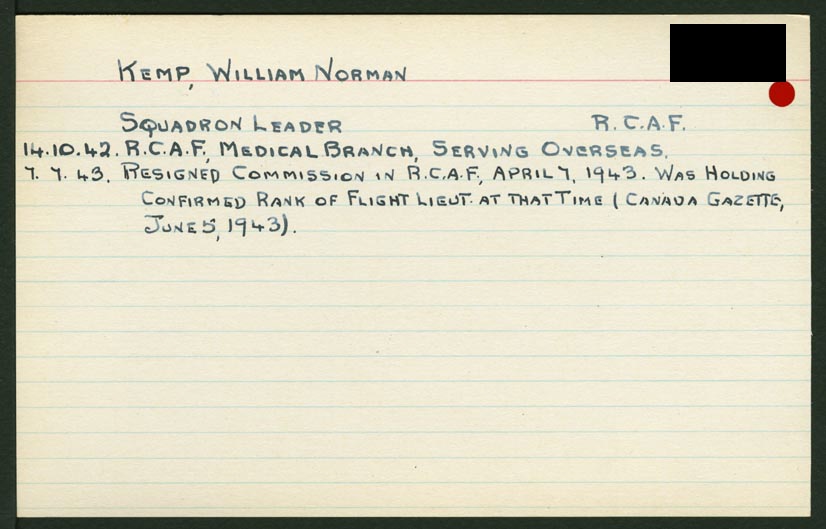 KEMP, WILLIAM NORMAN
SQUADRON LEADER R.C.A.F.
14.10.42. R.C.A.F., MEDICAL BRANCH, SERVING OVERSEAS.
7. 7. 43. RESIGNED COMMISSION IN R.C.A.F., APRIL 7, 1943. WAS HOLDING
CONFIRMED RANK OF FLIGHT LIEUT. AT THAT TIME (CANADA GAZETTE,
JUNE 5, 1943).